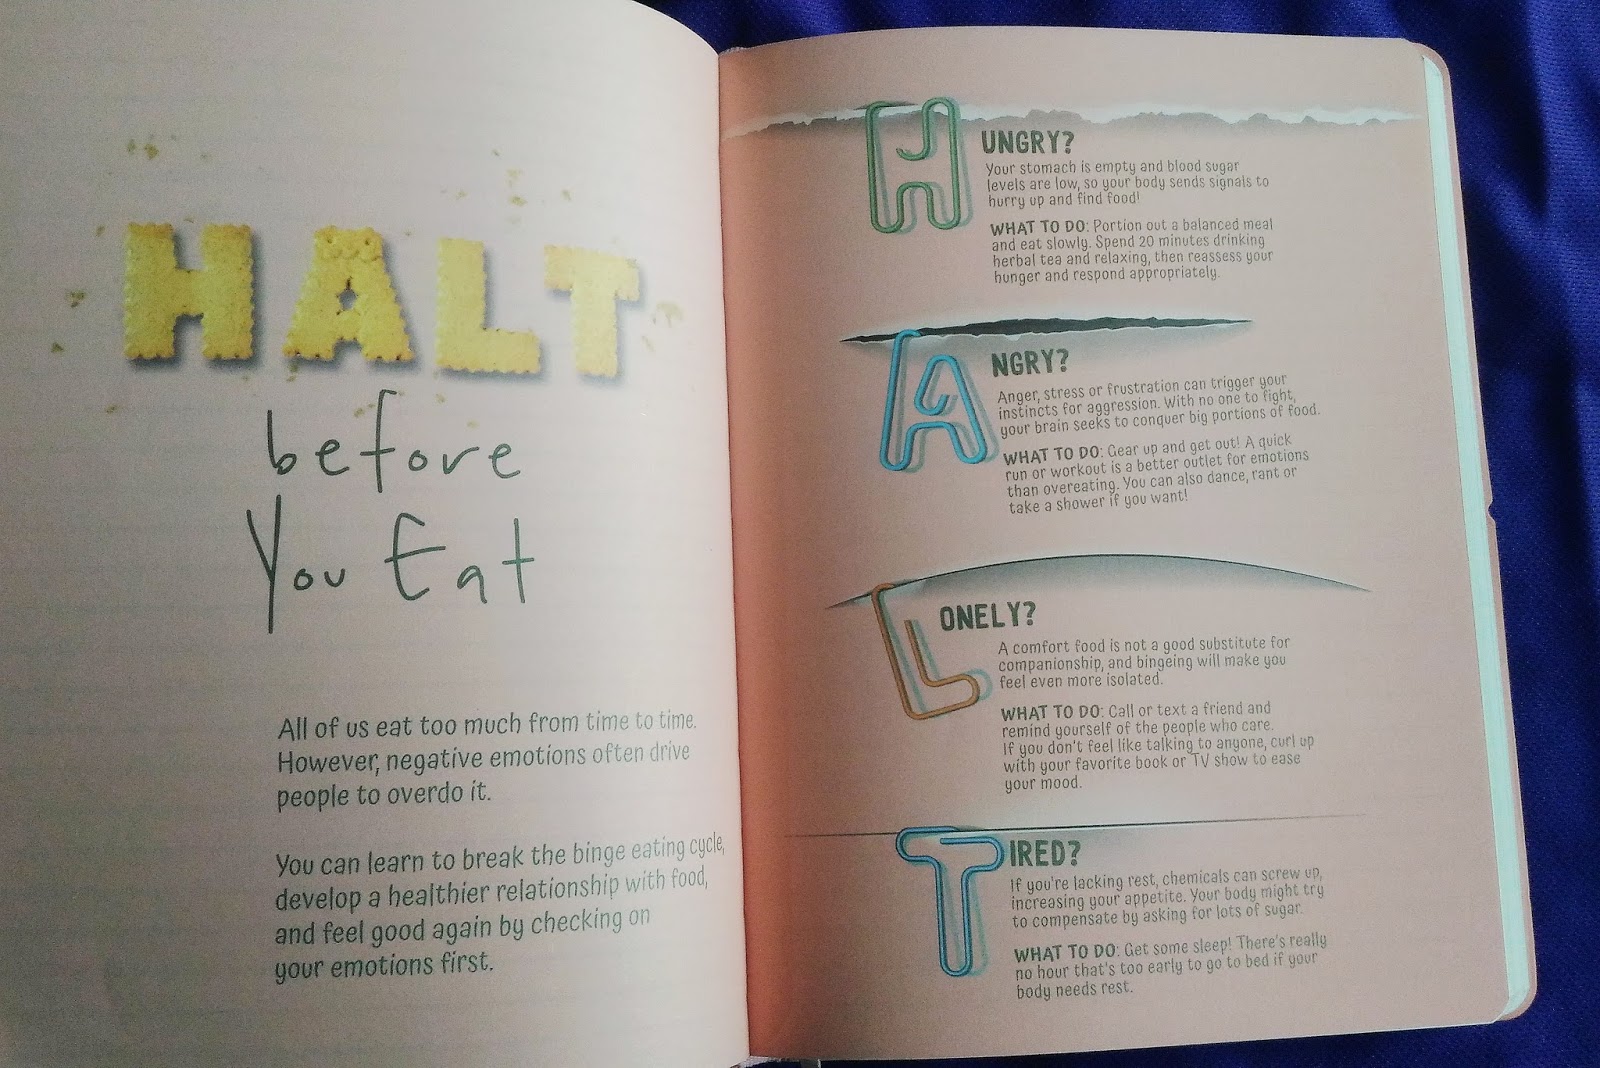 HALT
before
You Eat
All of us eat too much from time to time.
However, negative emotions often drive
people to overdo it.
You can learn to break the binge eating cycle,
develop a healthier relationship with food,
and feel good again by checking on
your emotions first.
HUNGRY?
Your stomach is empty and blood sugar
levels are low, so your body sends signals to
hurry up and find food!
WHAT TO DO: Portion out a balanced meal
and eat slowly. Spend 20 minutes drinking
herbal tea and relaxing, then reassess your
hunger and respond appropriately.
ANGRY?
Anger, stress or frustration can trigger your
instincts for aggression. With no one to fight,
your brain seeks to conquer big portions of food.
WHAT TO DO: Gear up and get out! A quick
run or workout is a better outlet for emotions
than overeating. You can also dance, rant or
take a shower if you want!
LONELY?
A comfort food is not a good substitute for
companionship, and bingeing will make you
feel even more isolated.
WHAT TO DO: Call or text a friend and
remind yourself of the people who care.
If you don't feel like talking to anyone, curl up
with your favorite book or TV show to ease
your mood.
TIRED?
If you're lacking rest, chemicals can screw up,
increasing your appetite. Your body might try
to compensate by asking for lots of sugar.
WHAT TO DO: Get some sleep! There's really
no hour that's too early to go to bed if your
body needs rest.